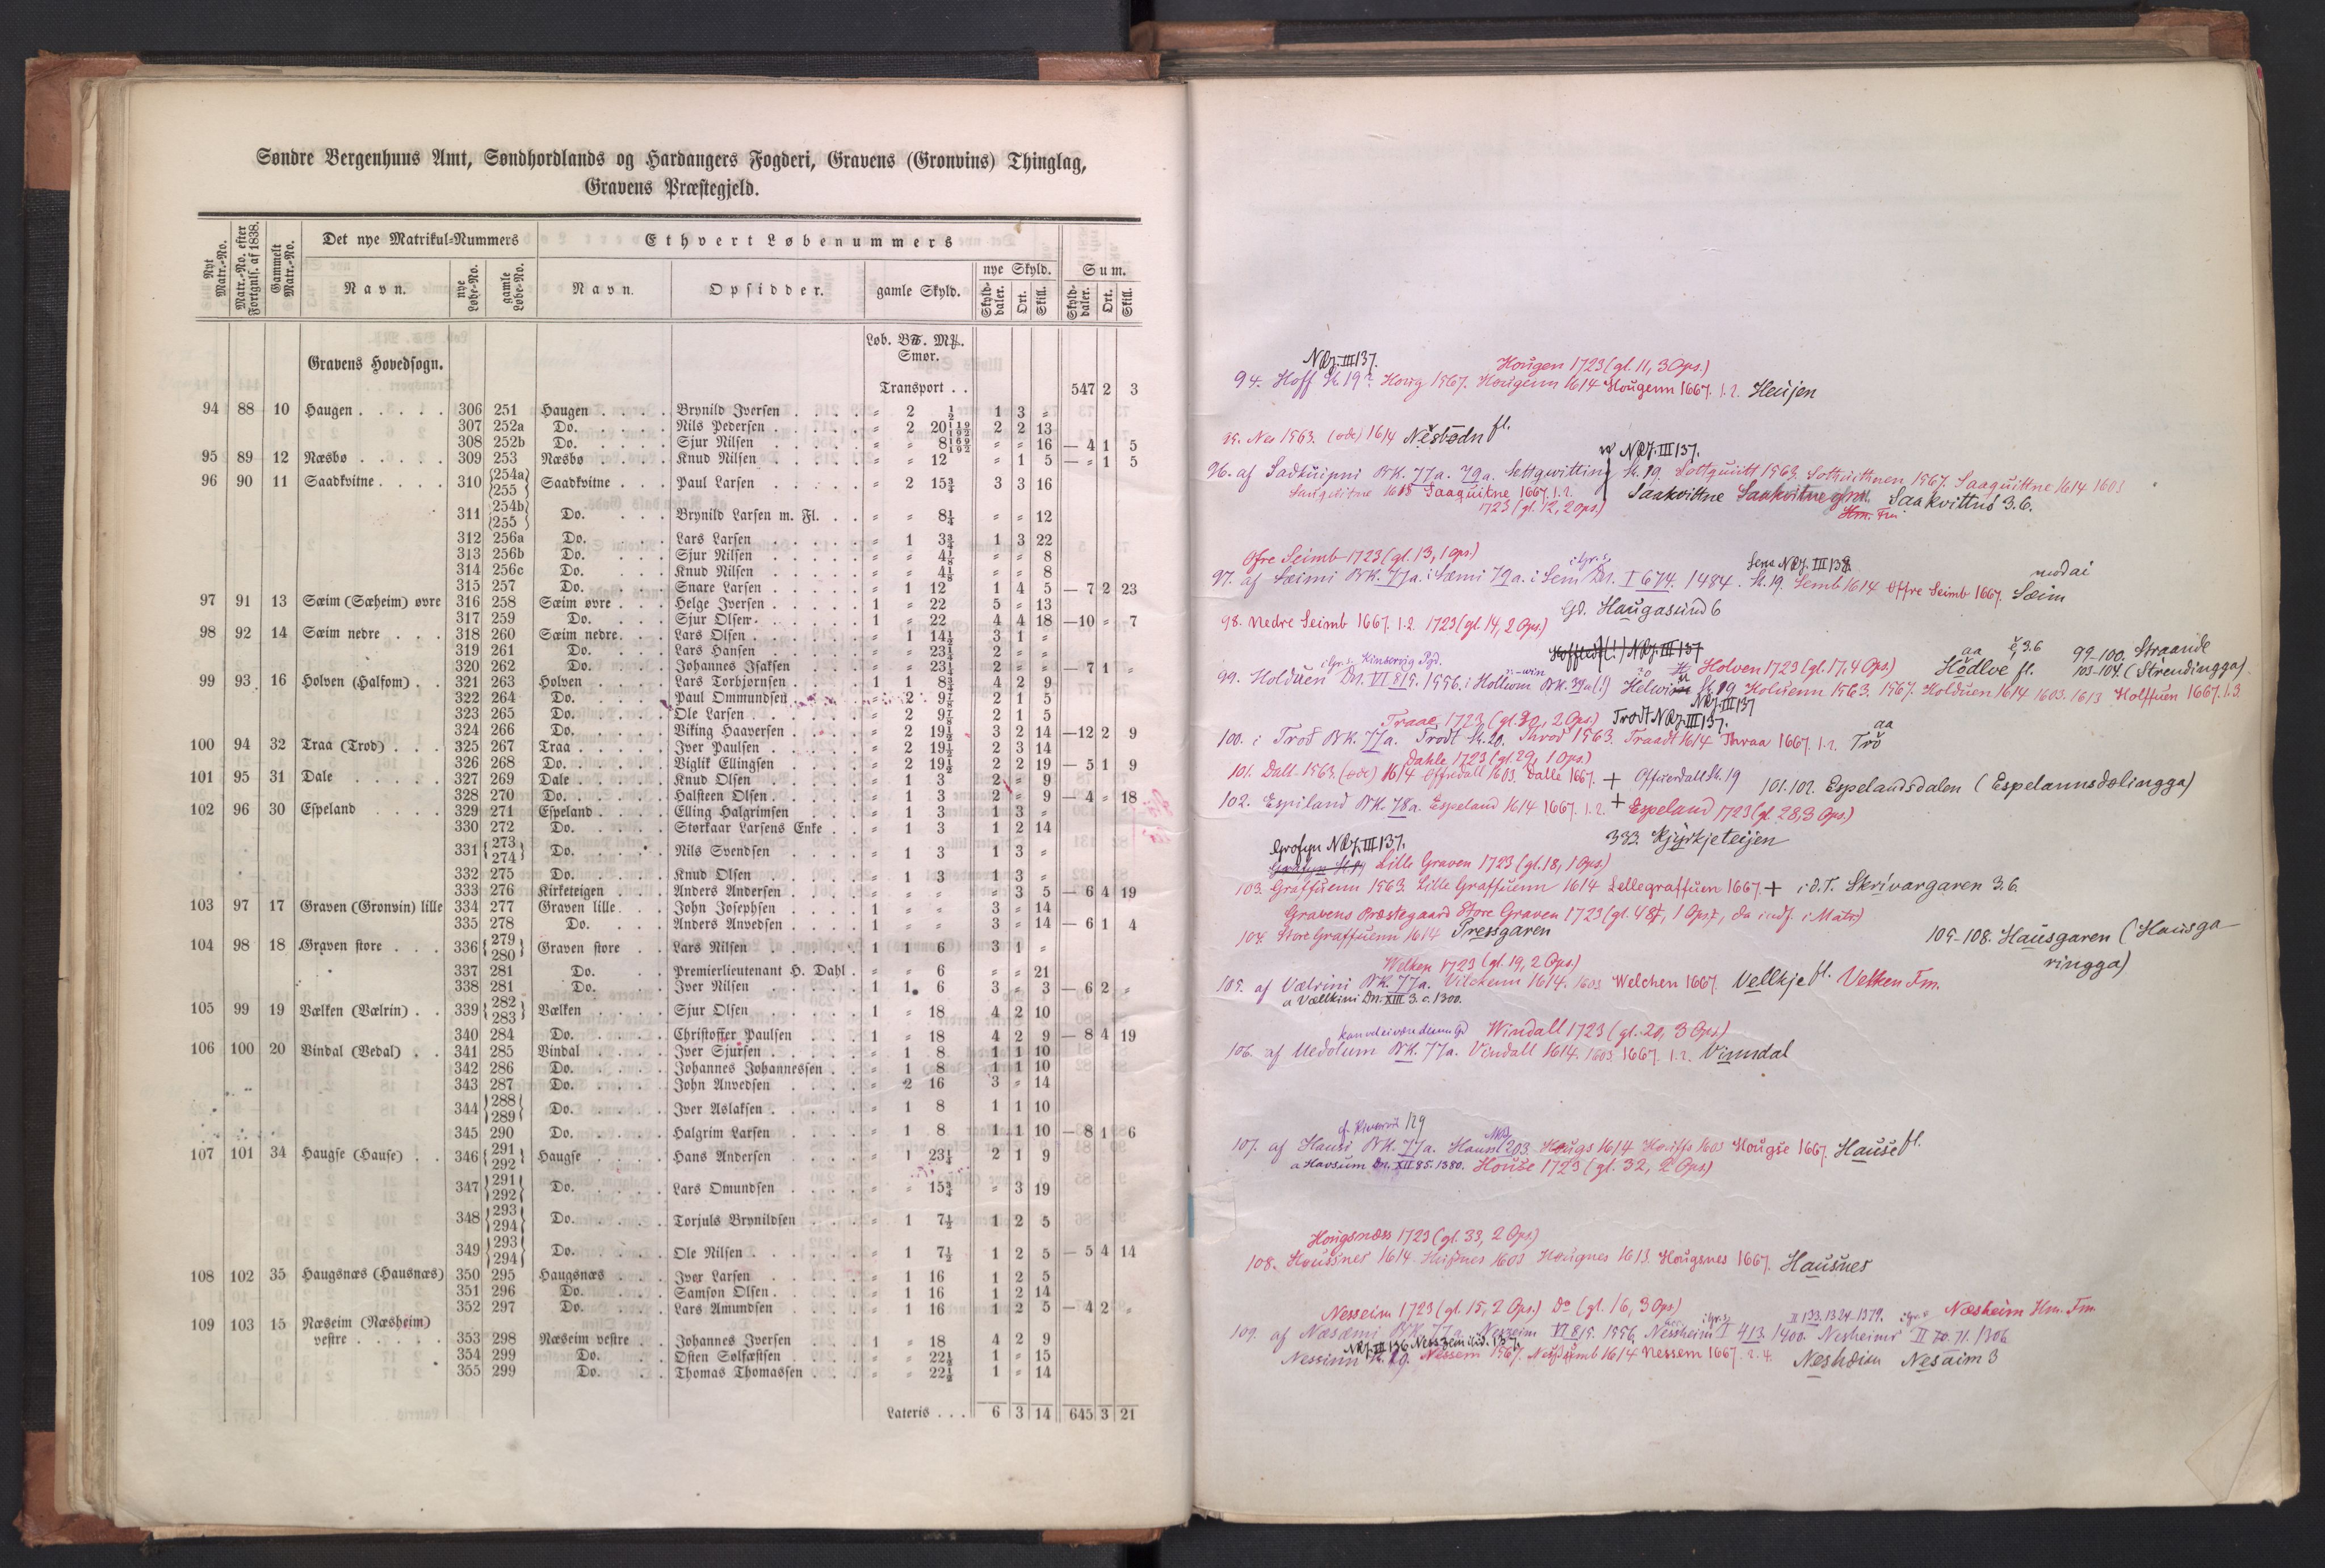 Søndre Bergenhuus Amt, Søndhordlands og Hardangers Fogderi, Gravens (Grønvins) Thinglag,
Gravens Præstegjeld.
Nyt Matr.-No. Matr.-No. efter Fortgnls. af 1838. Gammelt Matr.-No. Det nye Matrikul-Nummers Ethvert Løbenummers
Navn. nye Løbe-No. gamle Løbe-No. Navn. Opsidder. gamle Skyld. nye Skyld. Sum.
Skylddaler. Ort. Skill. Skylddaler. Ort. Skill.
Løb. B℔. M℔.
Smør.
Gravens Hovedsogn.
Transport . . 547 2 3
94 88 10 Haugen . . . . . 306 251 Haugen . . . . Brynild Iversen . . . . = 2 ½ 1 3 =
307 252a Do. . . . . Nils Pedersen . . . . . = 2 20 119/192 2 2 13
308 252b Do. . . . . Sjur Nilsen . . . . . = = 8 169/192 = = 16 — 4 1 5
95 89 12 Næsbø . . . . . 309 253 Næsbø . . . . Knud Nilsen . . . . . = = 12 = 1 5 — = 1 5
96 90 11 Saadkvitne . . . . 310 {254a 255} Saadkvitne . . . Paul Larsen . . . . . = 2 15¾ 3 3 16
311 {254b 255} Do. . . . Brynild Larsen m. Fl. . . = = 8¼ = = 12
312 256a Do. . . . Lars Larsen . . . . . = 1 3¾ 1 3 22
313 256b Do. . . . Sjur Nilsen . . . . . = = 4⅛ = = 8
314 256c Do. . . . Knud Nilsen . . . . . = = 4⅛ = = 8
315 257 Do. . . . Snare Larsen . . . . . = 1 12 1 4 5 — 7 2 23
97 91 13 Sæim (Sæheim) øvre 316 258 Sæim øvre . . . Helge Iversen . . . . . 1 = 22 5 = 13
317 259 Do. . . . Sjur Olsen . . . . . 1 = 22 4 4 18 —10 = 7
98 92 14 Sæim nedre . . . 318 260 Sæim nedre. . . Lars Olsen . . . . . = 1 14½ 3 1 =
319 261 Do. . . . Lars Hansen . . . . . = = 23¼ 2 = =
320 262 Do. . . . Johannes Isaksen . . . = = 23¼ 2 = = — 7 1 =
99 93 16 Holven (Halfom) . . 321 263 Holven . . . . Lars Torbjørnsen . . . . 1 1 8¾ 4 2 9
322 264 Do. . . . . Paul Ommundsen . . . . = 2 9⅞ 2 1 5
323 265 Do. . . . . Ole Larsen . . . . . = 2 9⅞ 2 1 5
324 266 Do. . . . . Viking Haaversen . . . . = 2 19½ 3 2 14 —12 2 9
100 94 32 Traa (Trod) . . . 325 267 Traa . . . . . Iver Paulsen . . . . . = 2 19½ 2 3 14
326 268 Do. . . . . . Viglik Ellingsen . . . . = 2 19½ 2 2 19 — 5 1 9
101 95 31 Dale . . . . . 327 269 Dale . . . . . Knud Olsen . . . . . = 1 3 2 = 9
328 270 Do. . . . . . Halsteen Olsen . . . . . = 1 3 2 = 9 — 4 = 18
102 96 30 Espeland . . . . 329 271 Espeland . . . . Elling Halgrimsen . . . = 1 3 1 3 =
330 272 Do. . . . . Størkaar Larsens Enke . . = 1 3 1 2 14
331 {273 274} Do. . . . . Nils Svendsen . . . . = 1 3 1 3 =
332 275 Do. . . . . Knud Olsen . . . . . = 1 3 1 3 =
333 276 Kirketeigen . . . Anders Andersen . . . . = = = = 3 5 — 6 4 19
103 97 17 Graven (Grønvin) lille 334 277 Graven lille. . . John Josephsen . . . . 1 = = 3 = 14
335 278 Do. . . . Anders Anvedsen . . . . 1 = = 3 = 14 — 6 1 4
104 98 18 Graven store . . . 336 {279 280} Graven store . . Lars Nilsen . . . . . 1 1 6 3 1 =
337 281 Do. . . Premierlieutenant H. Dahl . = = 6 = = 21
338 281 Do. . . Iver Nilsen . . . . . 1 1 6 3 = 3 — 6 2 =
105 99 19 Vælken (Vælrin) . . 339 {282 283} Vælken . . . . Sjur Olsen . . . . . 1 = 18 4 2 10
340 284 Do. . . . . Christoffer Paulsen . . . 1 = 18 4 2 9 — 8 4 19
106 100 20 Vindal (Vedal) . . 341 285 Vindal . . . . Iver Sjursen . . . . . = 1 8 1 1 10
342 286 Do. . . . . Johannes Johannessen . . = 1 8 1 1 10
343 287 Do. . . . . John Anvedsen . . . . = 2 16 3 = 14
344 {288 289} Do. . . . . Iver Aslaksen . . . . . = 1 8 1 1 10
345 290 Do. . . . . Halgrim Larsen . . . . = 1 8 1 1 10 — 8 1 6
107 101 34 Haugse (Hause) . . 346 {291 292} Haugse . . . . Hans Andersen . . . . = 1 23¼ 2 1 9
347 {291 292} Do. . . . . Lars Omundsen . . . . = = 15¾ = 3 19
348 {293 294} Do. . . . . Torjuls Brynildsen . . . = 1 7½ 1 2 5
349 {293 294} Do. . . . . Ole Nilsen . . . . . = 1 7½ 1 2 5 — 5 4 14
108 102 35 Haugsnæs (Hausnæs) 350 295 Haugsnæs . . . Iver Larsen . . . . . = 1 16 1 2 5
351 296 Do. . . . Samson Olsen . . . . . = 1 16 1 2 14
352 297 Do. . . . Lars Amundsen . . . . = 1 16 1 2 5 — 4 2 =
109 103 15 Næseim (Næsheim)
vestre . . . . . 353 298 Næseim vestre . . Johannes Iversen . . . 1 = 18 4 2 9
354 299 Do. . . Østen Solfæstsen . . . . = = 22½ 1 = 15
355 299 Do. . . Thomas Thomassen . . . = = 22½ 1 = 14
Lateris . . . 6 3 14 645 3 21
NRJ. III 137. Hougen 1723 (gl. 11, 3 Ops.)
94. Hoff St. 19. Houg 1567. Hougenn 1614 Hougenn 1667. 1.2. Heujen
95. Nes 1563. (øde) 1614 Nesbødn fl.
NRJ. III 137.
96. af Sadkuipni BK. 77a. 79a. Settgwitting St. 19. Sottguitt 1563. Sottuithnen 1567. Saaguittne 1614. 1603
Saaguitne 1667. 1.2. Saakvittne Saakvittnó 3.6.
1723 (gl. 12, 2 Ops.) Hm. Fm
Øfre Seimb 1723 (gl. 13, 1 Ops.) NRJ. III 138.
97. af Sæimi BK. 77a. i Sæmi 79a. i Sem Dn. I 674. 1484. St. 19. Semb 1614 Offre Seimb 1667. Sæim
98. Nedre Seimb 1667. 1.2. 1723 (gl. 14, 2 Ops.) Gd. Haugasund 6
i Gr. s. Kinservig Pgd. NRJ. III 137 Holven 1723 (gl. 17, 4 Ops.) Hódlve fl. 99-100. Straande
99. Holduen Dn. VI 815. 1556. i Hollwin BK. 39a (!) St. 19 Holuenn 1563. 1567. Holduen 1614 1603. 1613 Holffuen 1667. 1.3 103-104. (Strendingga)
NRJ. III 137
Traae 1723 (gl. 30, 2 Ops.) Trodt NRJ. III 137.
100. i Trod BK. 77a. Trodt St. 20. Throd 1563. Traadt 1614 Thraa 1667. 1.2. Tró
Dahle 1723 (gl. 29, 1 Ops.)
101. Dall 1563. (øde) 1614 Offredall 1603. Dalle 1667. + Offuerdall St. 19 101.102. Espelandsdalen (Espelannsdølingga)
102. Espiland BK. 78a. Espeland 1614 1667. 1.2. + Espeland 1723 (gl. 28, 3 Ops.)
333. Kjyrkjeteijen
Grofyn NRJ. III 137.
Lille Graven 1723 (gl. 18, 1 Ops.)
103. Graffuenn 1563. Lille Graffuenn 1614 Lellegraffuen 1667. + i d. T. Skrivargaren 3.6.
Gravens Præstegaard Store Graven 1723 (gl. 48, 1 Ops., da indf. i Matr.)
104. Store Graffuenn 1614 Pressgaren 105-108. Hausgaren (Hausga
ringga)
Welken 1723 (gl. 19, 2 Ops.)
105. af Vælrini BK. 77a. Vilckenn 1614. 1603 Welchen 1667. Vellkje fl. Velken Fm.
a Vællkini Dn. XIII 3. c. 1300.
kan vel ei være denne Gd Windall 1723 (gl. 20, 3 Ops.)
106. af Ueddum BK. 77a. Vindall 1614. 1603. 1667. 1.2. Vinndal
107. af Hausi BK. 77a. Haugs 1614 Houffs 1603 Hougse 1667. Hause fl.
a Hausum Dn. XII 85. 1380. House 1723 (gl. 32, 2 Ops.)
Hougsnæs 1723 (gl. 33, 2 Ops.)
108. Haussnes 1614. 1603 Hougnes 1613. Hougsnes 1667. Hausnes
Nesseim 1723 (gl. 15, 2 Ops.) Do (gl. 16, 3 Ops) II 133. 1324-1379. Næsheim Hm. Fm
109. af Næsæimi BK. 77a. Nesseim VI 815. 1556. Nessheim I 413. 1400. Nesheimr II 70. 71. 1306
NRJ. III 136
Nessinn St. 19. Nessem 1567. 1614 Nessem 1667. 2.4. Neshæim Nesaim 3